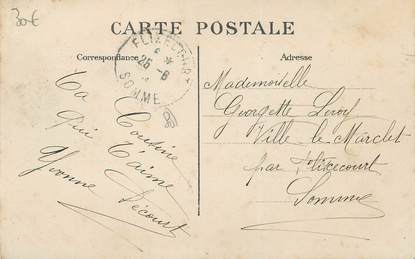 30€
CARTE POSTALE
Correspondance
Adresse
FLIXECOURT
25-6
SOMME
Ta Cousine
Qui t'aime
Yvonne Décourt
Mademoiselle
Georgette Leroy
Ville-le-Marclet
par Flixecourt
Somme